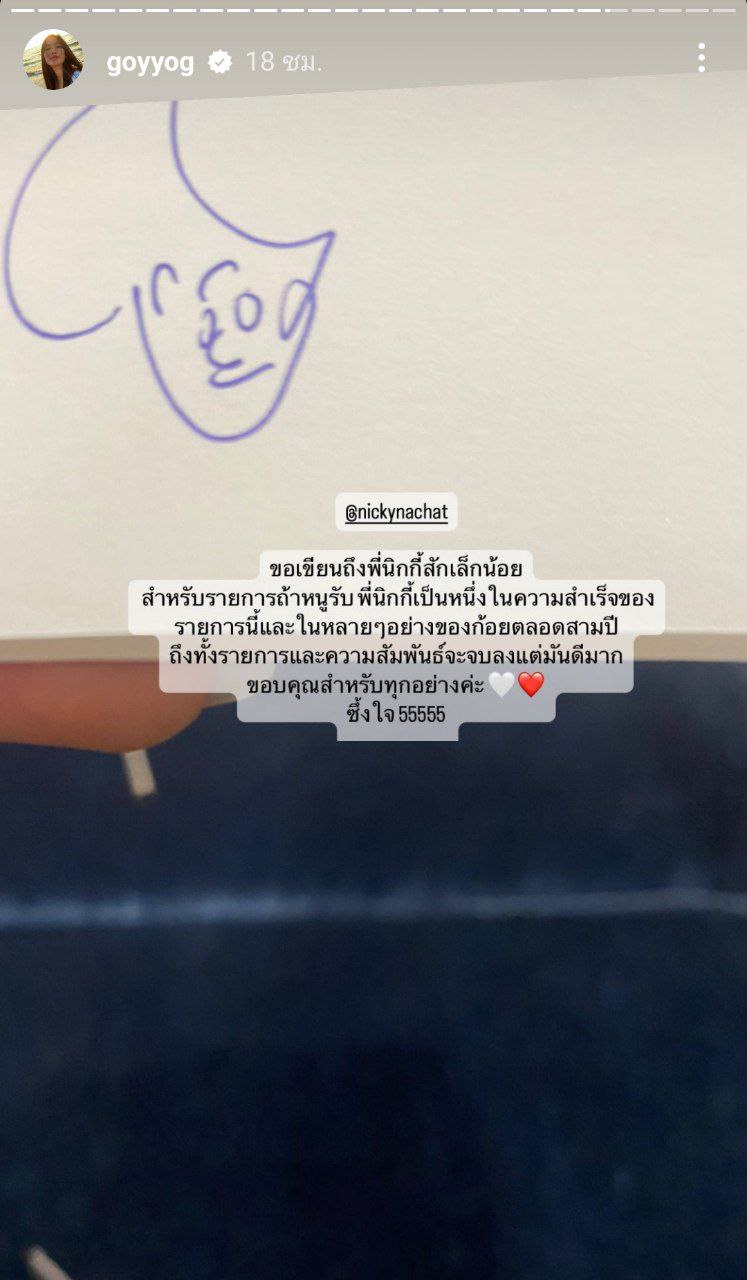 goyyog 18 ชม.
@nickynachat
ขอเขียนถึงพี่นิกกี้สักเล็กน้อย
สำหรับรายการถ้าหนูรับ พี่นิกกี้เป็นหนึ่งในความสำเร็จของ
รายการนี้และในหลายๆอย่างของก้อยตลอดสามปี
ถึงทั้งรายการและความสัมพันธ์จะจบลงแต่มันดีมาก
ขอบคุณสำหรับทุกอย่างค่ะ 🤍❤️
ซึ้งใจ 55555